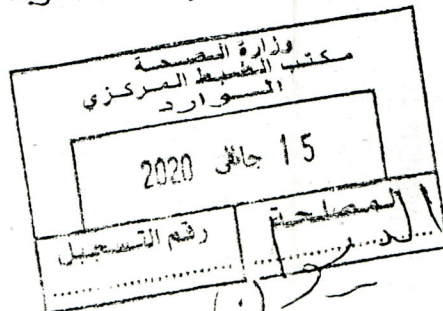 وزارة الصحة
مكتب الضبط المركزي
الـــوارد
15 جانفي 2020
المصلحة
رقم التسجيل
الديوان